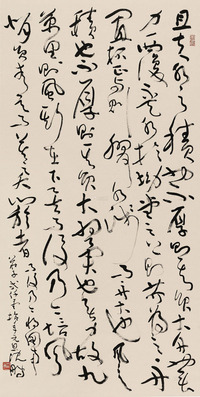 且夫水之積也不厚則其負大舟也無
力覆杯水於坳堂之上則芥為之舟
置杯焉則膠水淺而舟大也風之
積也不厚則其負大翼也無力故九
萬里則風斯在下矣而後乃今培風
背負青天而莫之夭閼者
而後乃今將圖南